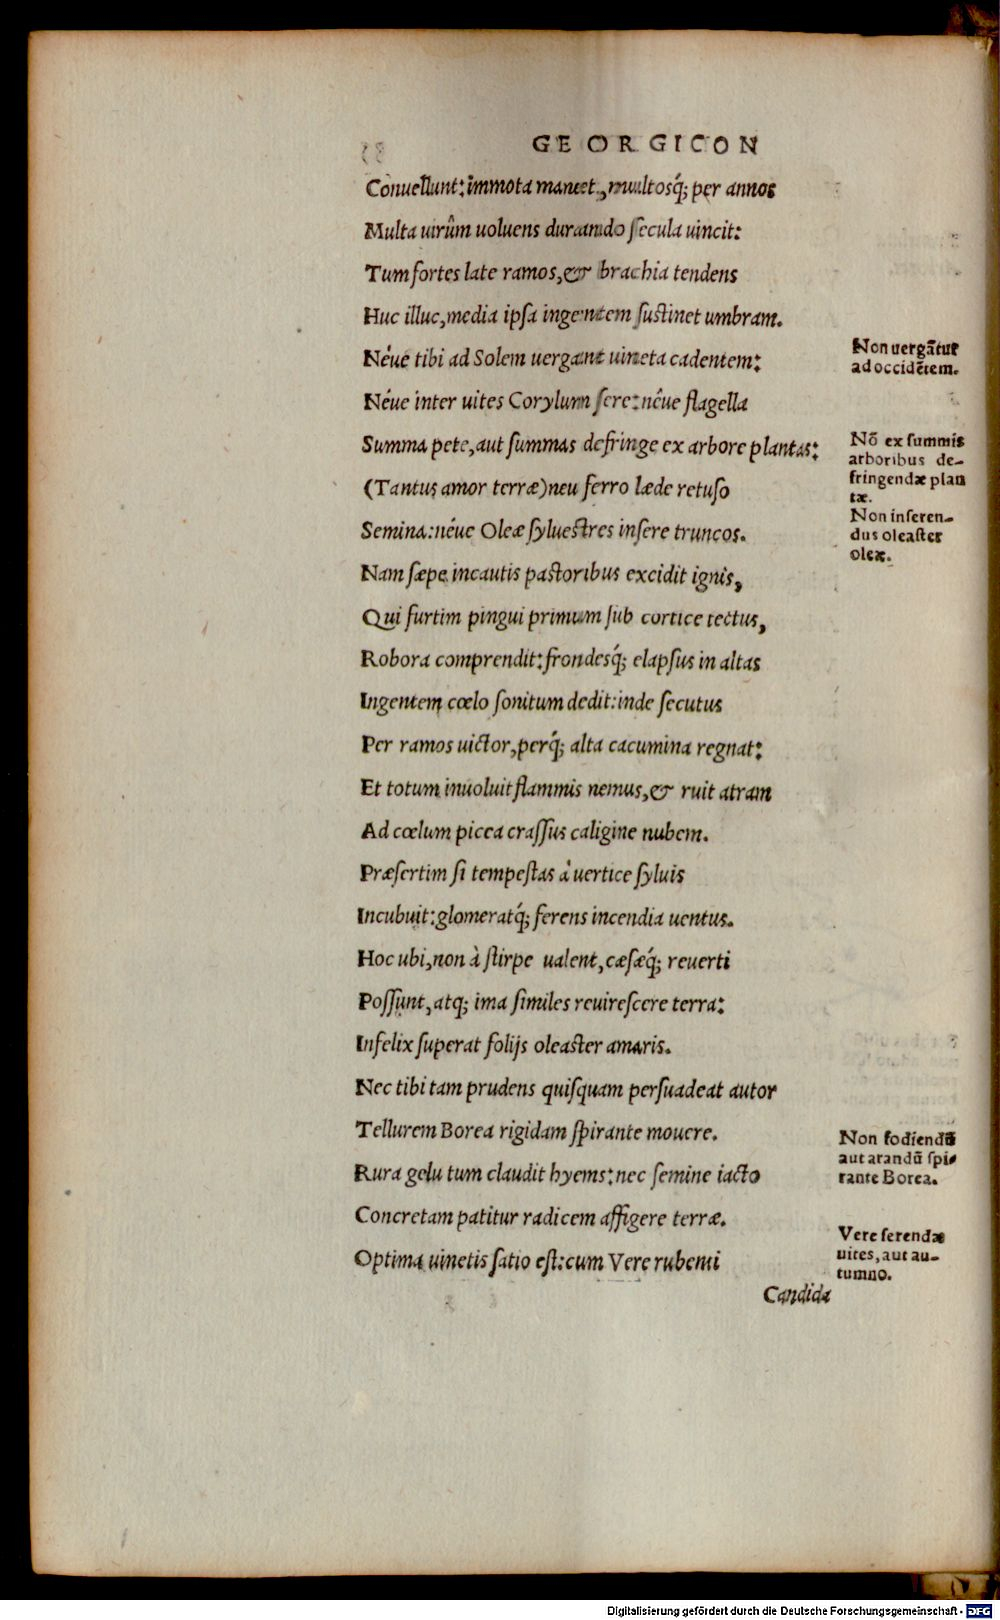 GEORGICON
Conuellunt: immota manet, multosq́; per annos
Multa uirûm uoluens durando secula uincit:
Tum fortes late ramos, & brachia tendens
Huc illuc, media ipsa ingentem sustinet umbram.
Néue tibi ad Solem uergant uineta cadentem:
Non uergãtur
ad occidẽtem.
Néue inter uites Corylum sere: néue flagella
Summa pete, aut summas defringe ex arbore plantas:
Nõ ex summis
arboribus de-
fringendæ plan
tæ.
(Tantus amor terræ) neu ferro læde retuso
Semina: néue Oleæ syluestres insere truncos.
Non inseren-
dus oleaster
oleæ.
Nam sæpe incautis pastoribus excidit ignis,
Qui furtim pingui primum sub cortice tectus,
Robora comprendit: frondesq́; elapsus in altas
Ingentem cœlo sonitum dedit: inde secutus
Per ramos uictor, perq́; alta cacumina regnat:
Et totum inuoluit flammis nemus, & ruit atram
Ad cœlum picea crassus caligine nubem.
Præsertim si tempestas à uertice syluis
Incubuit: glomeratq́; ferens incendia uentus.
Hoc ubi, non à stirpe ualent, cæsæq́; reuerti
Possunt, atq; ima similes reuirescere terra:
Infelix superat folijs oleaster amaris.
Nec tibi tam prudens quisquam persuadeat autor
Tellurem Borea rigidam spirante mouere.
Non fodiendũ
aut arandũ spi-
rante Borea.
Rura gelu tum claudit hyems: nec semine iacto
Concretam patitur radicem affigere terræ.
Optima uinetis satio est: cum Vere rubenti
Vere serendæ
uites, aut au-
tumno.
Candida
Digitalisierung gefördert durch die Deutsche Forschungsgemeinschaft - DFG